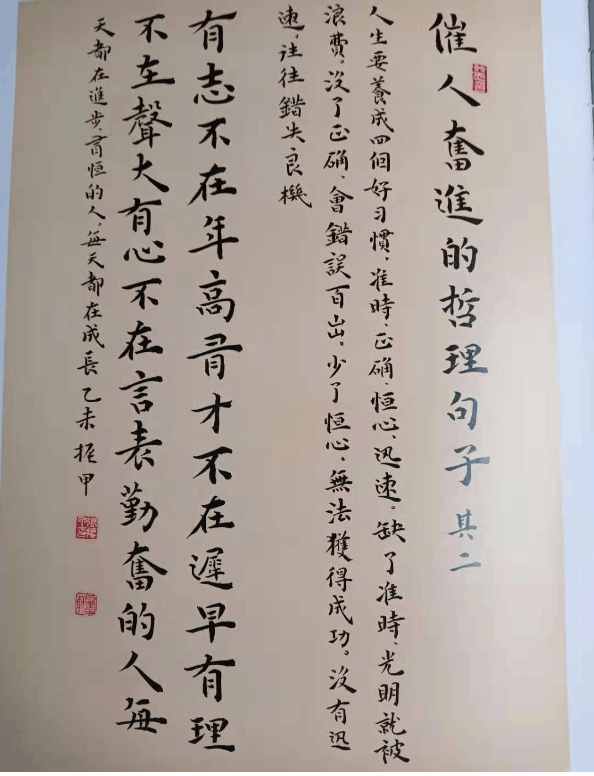 催人奮進的哲理句子 其二
人生要養成四個好习慣，准時、正确、恒心、迅速，缺了准時，光明就被
浪費，没了正确，會錯誤百出，少了恒心，無法獲得成功。没有迅
速，往往錯失良機
有志不在年高有才不在遲早有理
不在聲大有心不在言表勤奮的人每
天都在進步，有恒的人，每天都在成長乙未振甲